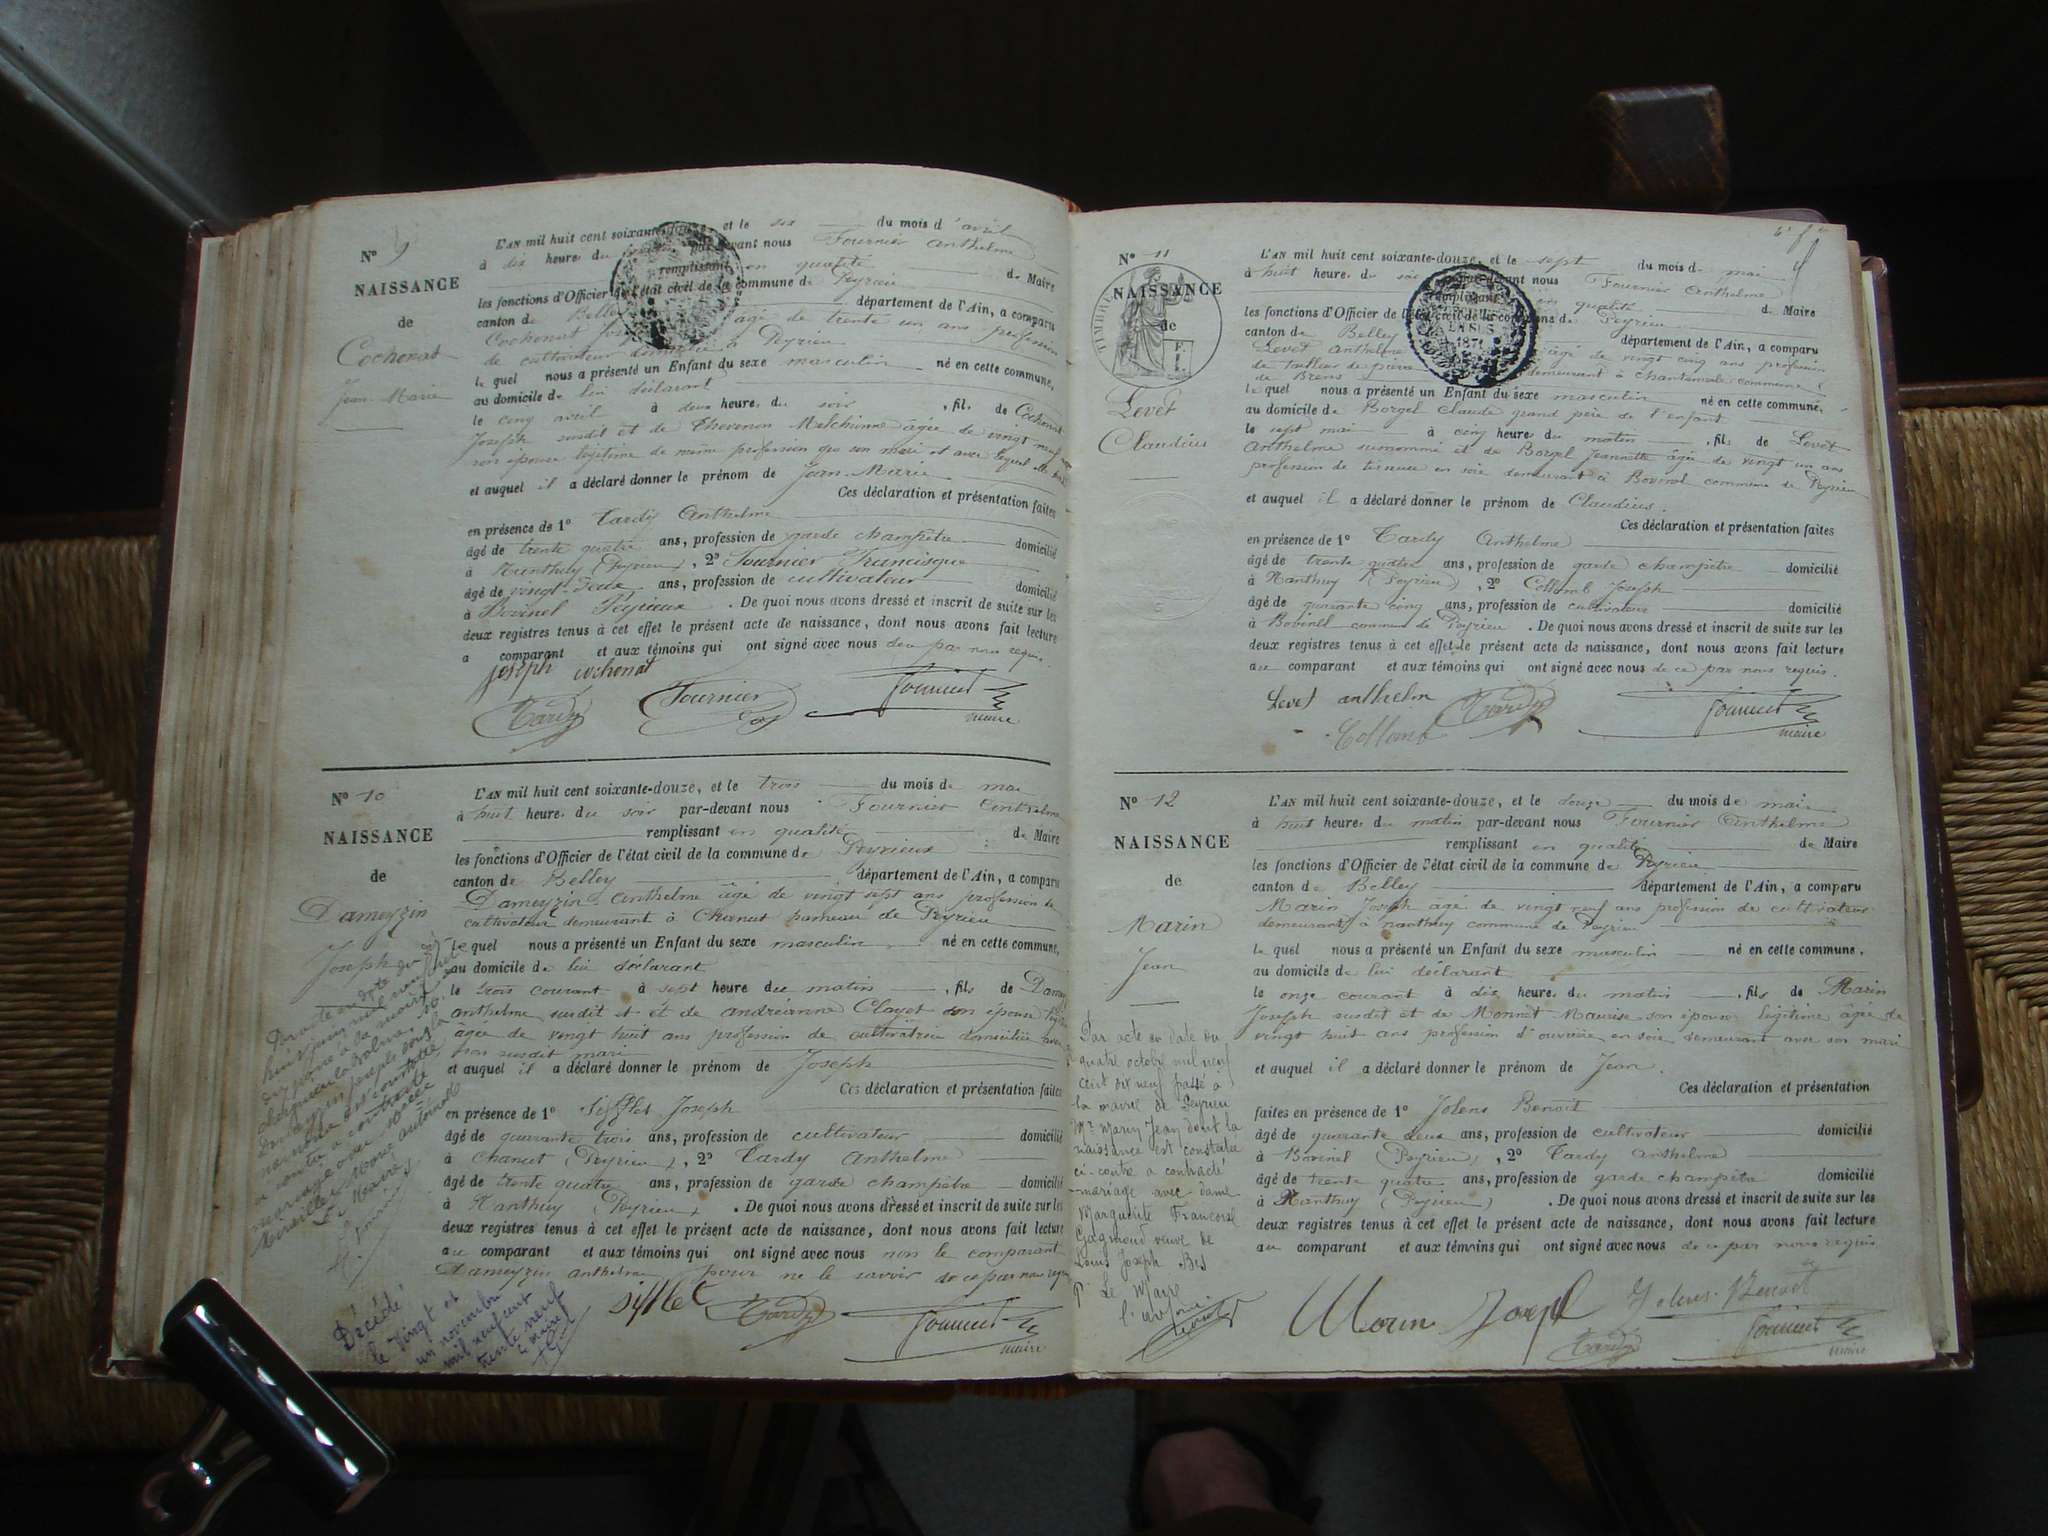 Nº 9
NAISSANCE
de
Cochonat
Jean-Marie
L'AN mil huit cent soixante-douze, et le six du mois d'avril
à dix heures du par-devant nous Fournier Anthelme
remplissant en qualité de Maire
les fonctions d'Officier de l'état civil de la commune de Peyrieu
canton de Belley département de l'Ain, a comparu
Cochonat Joseph âgé de trente un ans profession
de cultivateur domicilié à Peyrieu
lequel nous a présenté un Enfant du sexe masculin né en cette commune,
au domicile de lui déclarant
le cinq avril à deux heures du soir, fils de Cochonat
Joseph susdit et de Thevenon Melchionne âgée de vingt neuf ans
son épouse légitime de même profession que son mari et avec lequel elle
et auquel il a déclaré donner le prénom de Jean-Marie
Ces déclaration et présentation faites
en présence de 1º Tardy Anthelme
âgé de trente quatre ans, profession de garde champêtre domicilié
à Nanthuy (Peyrieu), 2º Fournier Francisque
âgé de vingt-deux ans, profession de cultivateur domicilié
à Bovinel Peyrieux. De quoi nous avons dressé et inscrit de suite sur les
deux registres tenus à cet effet le présent acte de naissance, dont nous avons fait lecture
a comparant et aux témoins qui ont signé avec nous de ce par nous requis
joseph cochonat
Tardy Fournier Fournier
maire
Nº 10
NAISSANCE
de
Dameyzin
Joseph
L'AN mil huit cent soixante-douze, et le trois du mois de mai
à huit heures du soir par-devant nous Fournier Anthelme
remplissant en qualité de Maire
les fonctions d'Officier de l'état civil de la commune de Peyrieux
canton de Belley département de l'Ain, a comparu
Dameyzin anthelme âgé de vingt sept ans profession de
cultivateur demeurant à Chanut hameau de Peyrieu
lequel nous a présenté un Enfant du sexe masculin né en cette commune,
au domicile de lui déclarant
le trois courant à sept heure du matin, fils de Dameyzin
anthelme susdit et de andréanne Clayet son épouse
âgée de vingt huit ans profession de cultivatrice domiciliée avec
son susdit mari
et auquel il a déclaré donner le prénom de Joseph
Ces déclaration et présentation faites
en présence de 1º Sifflet Joseph
âgé de quarante trois ans, profession de cultivateur domicilié
à Chanut (Peyrieu), 2º Tardy Anthelme
âgé de trente quatre ans, profession de garde champêtre domicilié
à Nanthuy (Peyrieu). De quoi nous avons dressé et inscrit de suite sur les
deux registres tenus à cet effet le présent acte de naissance, dont nous avons fait lecture
au comparant et aux témoins qui ont signé avec nous non le comparant
Dameyzin anthelme pour ne le savoir de ce par nous requis
sifflet Tardy Fournier
maire
Par acte en date du
huit juin mil neuf cent
à la mairie
Dameyzin Joseph dont la
naissance est ci-contre
a contracté
mariage avec
Mireille Marie Antoinette
Le Maire,
Décédé
le vingt et
un novembre
mil neuf cent
trente neuf
Le maire
Nº 11
NAISSANCE
de
TIMBRE
Levet
Claudius
L'AN mil huit cent soixante-douze, et le sept du mois de mai
à huit heures du soir par-devant nous Fournier Anthelme
remplissant en qualité de Maire
les fonctions d'Officier de l'état civil de la commune de Peyrieu
canton de Belley département de l'Ain, a comparu
Levet Anthelme âgé de vingt cinq ans profession
de tailleur de pierre demeurant à chantemerle commune
de Brens
lequel nous a présenté un Enfant du sexe masculin né en cette commune,
au domicile de Borgel Claude grand père de l'enfant
le sept mai à cinq heures du matin, fils de Levet
Anthelme surnommé et de Borgel Jeannette âgée de vingt un ans
profession de tisseuse en soie demeurant à Bovinel commune de Peyrieu
et auquel il a déclaré donner le prénom de Claudius.
Ces déclaration et présentation faites
en présence de 1º Tardy Anthelme
âgé de trente quatre ans, profession de garde champêtre domicilié
à Nanthuy (Peyrieu), 2º Collomb Joseph
âgé de quarante cinq ans, profession de cultivateur domicilié
à Bovinel commune de Peyrieu. De quoi nous avons dressé et inscrit de suite sur les
deux registres tenus à cet effet le présent acte de naissance, dont nous avons fait lecture
au comparant et aux témoins qui ont signé avec nous de ce par nous requis.
Levet anthelm Tardy Fournier
Collomb maire
Nº 12
NAISSANCE
de
Marin
Jean
L'AN mil huit cent soixante-douze, et le douze du mois de mai
à huit heures du matin par-devant nous Fournier Anthelme
remplissant en qualité de Maire
les fonctions d'Officier de l'état civil de la commune de Peyrieu
canton de Belley département de l'Ain, a comparu
Marin Joseph âgé de vingt neuf ans profession de cultivateur
demeurant à nanthuy commune de Peyrieu
lequel nous a présenté un Enfant du sexe masculin né en cette commune,
au domicile de lui déclarant
le onze courant à dix heures du matin, fils de Marin
Joseph susdit et de Monnet Maurise son épouse légitime âgée de
vingt huit ans profession d'ouvrière en soie demeurant avec son mari
et auquel il a déclaré donner le prénom de Jean.
Ces déclaration et présentation
faites en présence de 1º Jolens Benoit
âgé de quarante deux ans, profession de cultivateur domicilié
à Bovinel (Peyrieu), 2º Tardy Anthelme
âgé de trente quatre ans, profession de garde champêtre domicilié
à Nanthuy (Peyrieu). De quoi nous avons dressé et inscrit de suite sur les
deux registres tenus à cet effet le présent acte de naissance, dont nous avons fait lecture
au comparant et aux témoins qui ont signé avec nous de ce par nous requis
Marin Joseph Jolens Benoit
Tardy Fournier
maire
Par acte en date du
quatre octobre mil neuf
cent dix neuf passé à
la mairie de Peyrieu
Mr Marin Jean dont la
naissance est constatée
ci-contre a contracté
mariage avec dame
Marguerite Francoise
Gagnoud veuve de
Louis Joseph Bes
P. Le Maire
l'adjoint